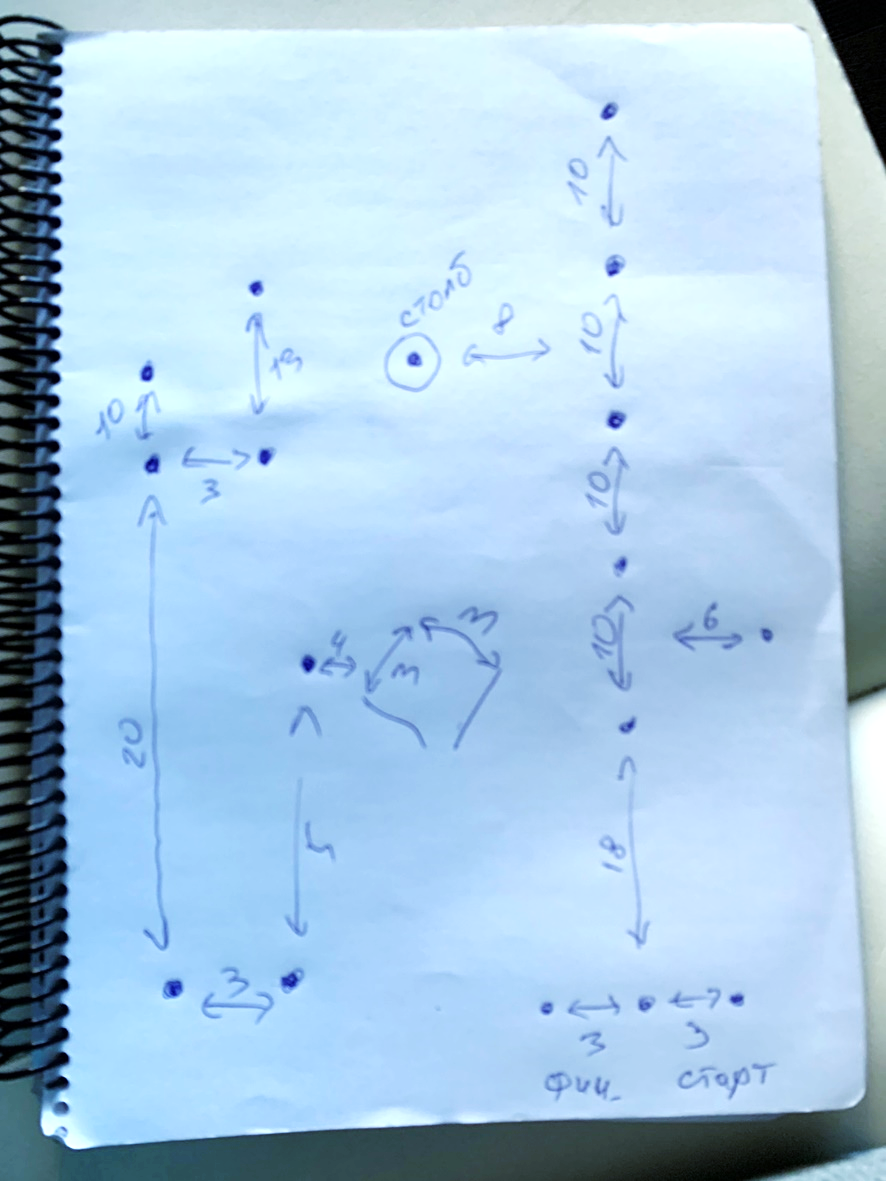 10
столб
8
10
13
10
3
10
10
6
4
3
3
20
18
5
3
3
3
фин.
старт